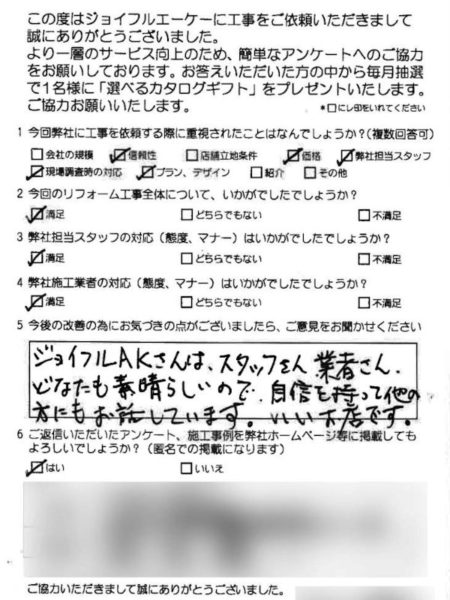 この度はジョイフルエーケーに工事をご依頼いただきまして
誠にありがとうございました。
より一層のサービス向上のため、簡単なアンケートへのご協力
をお願いしております。お答えいただいた方の中から毎月抽選
で1名様に「選べるカタログギフト」をプレゼントいたします。
ご協力お願いいたします。 *□にレ印をいれてください
1 今回弊社に工事を依頼する際に重視されたことはなんでしょうか?(複数回答可)
□会社の規模 ☑信頼性 □店舗立地条件 ☑価格 ☑弊社担当スタッフ
☑現場調査時の対応 ☑プラン、デザイン □紹介 □その他
2 今回のリフォーム工事全体について、いかがでしたでしょうか?
☑満足 □どちらでもない □不満足
3 弊社担当スタッフの対応(態度、マナー)はいかがでしたでしょうか?
☑満足 □どちらでもない □不満足
4 弊社施工業者の対応(態度、マナー)はいかがでしたでしょうか?
☑満足 □どちらでもない □不満足
5 今後の改善の為にお気づきの点がございましたら、ご意見をお聞かせください
ジョイフルAKさんは、スタッフさん 業者さん、
どなたも素晴らしいので、自信を持って他の
方にもお話しています。いいお店です。
6 ご返信いただいたアンケート、施工事例を弊社ホームページ等に掲載しても
よろしいでしょうか?(匿名での掲載になります)
☑はい □いいえ
ご協力いただきまして誠にありがとうございました。